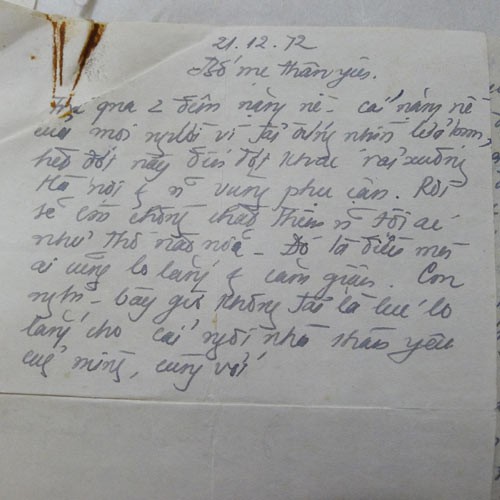 21.12.72
Bố mẹ thân yêu.
Đã qua 2 đêm nặng nề - cái nặng nề
của mọi người vì phải đứng nhìn lửa bom,
hết đợt này đến đợt khác rải xuống
Hà Nội & vùng phụ cận. Rồi
sẽ còn chồng chất thêm tội ác
như thế nào nữa - Đó là điều mọi
ai cũng lo lắng & căm giận. Con
nghĩ - bây giờ không phải là lúc lo
lắng cho cái ngôi nhà thân yêu
của mình, cùng với